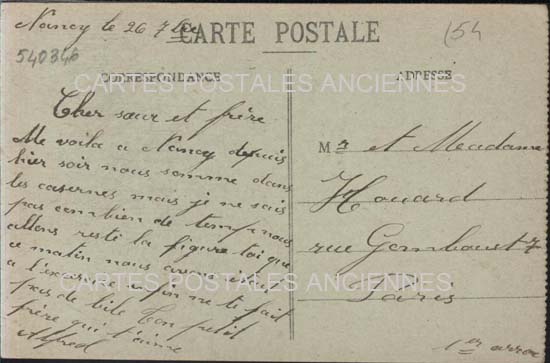 Nancy le 26 7bre
CARTE POSTALE
(154
540346
CORRESPONDANCE
ADRESSE
CARTES POSTALES ANCIENNES
Cher sœur et frère
Me voila a Nancy depuis
hier soir nous somme dans
les casernes mais je ne sais
pas combien de temp nous
allons resté la figure toi que
ce matin nous avons
a l'exercice enfin ne te fait
pas de bile ton petit
frère qui t'aime
Alfred
Mr et Meadame
Houard
rue Gomboust 7
Paris
1er arron
CARTES POSTALES ANCIENNES